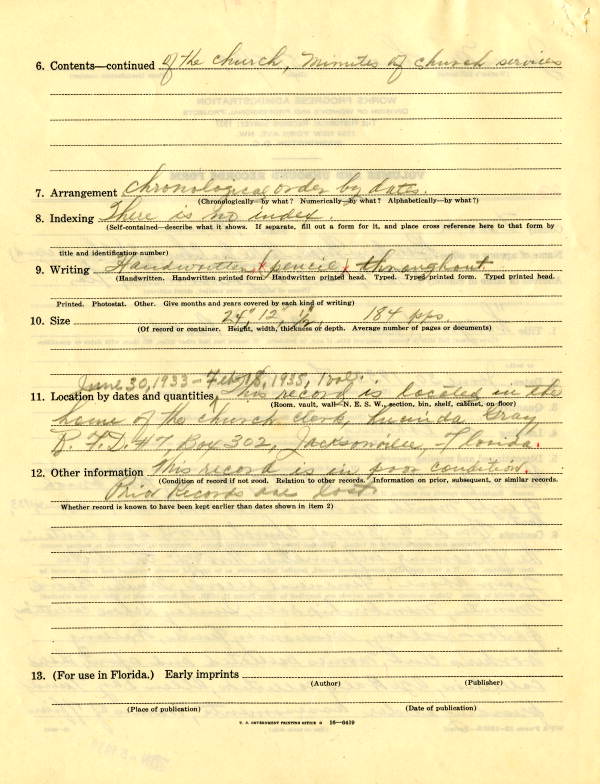 6. Contents—continued of the church, Minutes of church services
7. Arrangement Chronological order by dates.
(Chronologically—by what? Numerically—by what? Alphabetically—by what?)
8. Indexing There is no index.
(Self-contained—describe what it shows. If separate, fill out a form for it, and place cross reference here to that form by
title and identification number)
9. Writing Handwritten (pencil) throughout.
(Handwritten. Handwritten printed form. Handwritten printed head. Typed. Typed printed form. Typed printed head.
Printed. Photostat. Other. Give months and years covered by each kind of writing)
10. Size 24", 12", ½ 184 pps.
(Of record or container. Height, width, thickness or depth. Average number of pages or documents)
June 30, 1933 - Feb. 18, 1935, 1 vol.
11. Location by dates and quantities This record is located in the
(Room, vault, wall—N. E. S. W., section, bin, shelf, cabinet, on floor)
home of the church clerk, Lucinda Gray
R. F. D. #7, Box 302, Jacksonville, Florida.
12. Other information This record is in poor condition.
(Condition of record if not good. Relation to other records. Information on prior, subsequent, or similar records.
Prior Records are lost.
Whether record is known to have been kept earlier than dates shown in item 2)
13. (For use in Florida.) Early imprints
(Author) (Publisher)
(Place of publication) (Date of publication)
U. S. GOVERNMENT PRINTING OFFICE 16—6419